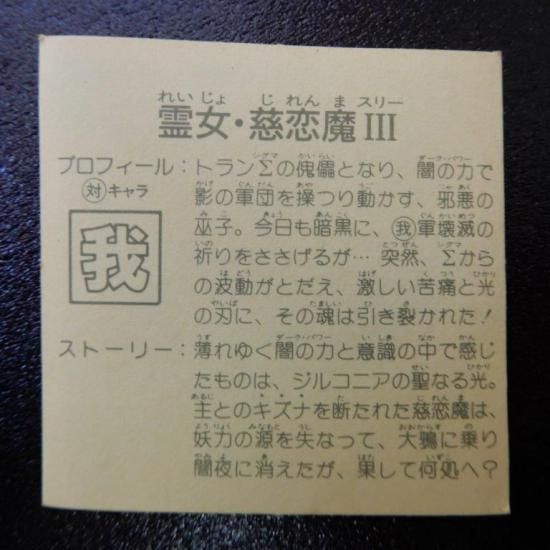 れいじょ じれんまスリー
霊女・慈恋魔III
プロフィール：トランΣの傀儡となり、闇の力で
対キャラ
影の軍団を操つり動かす、邪悪の
巫子。今日も暗黒に、我軍壊滅の
祈りをささげるが… 突然、Σから
の波動がとだえ、激しい苦痛と光
の刃に、その魂は引き裂かれた！
我
ストーリー：薄れゆく闇の力と意識の中で感じ
たものは、ジルコニアの聖なる光。
主とのキズナを断たれた慈恋魔は、
妖力の源を失なって、大鴉に乗り
闇夜に消えたが、果して何処へ？